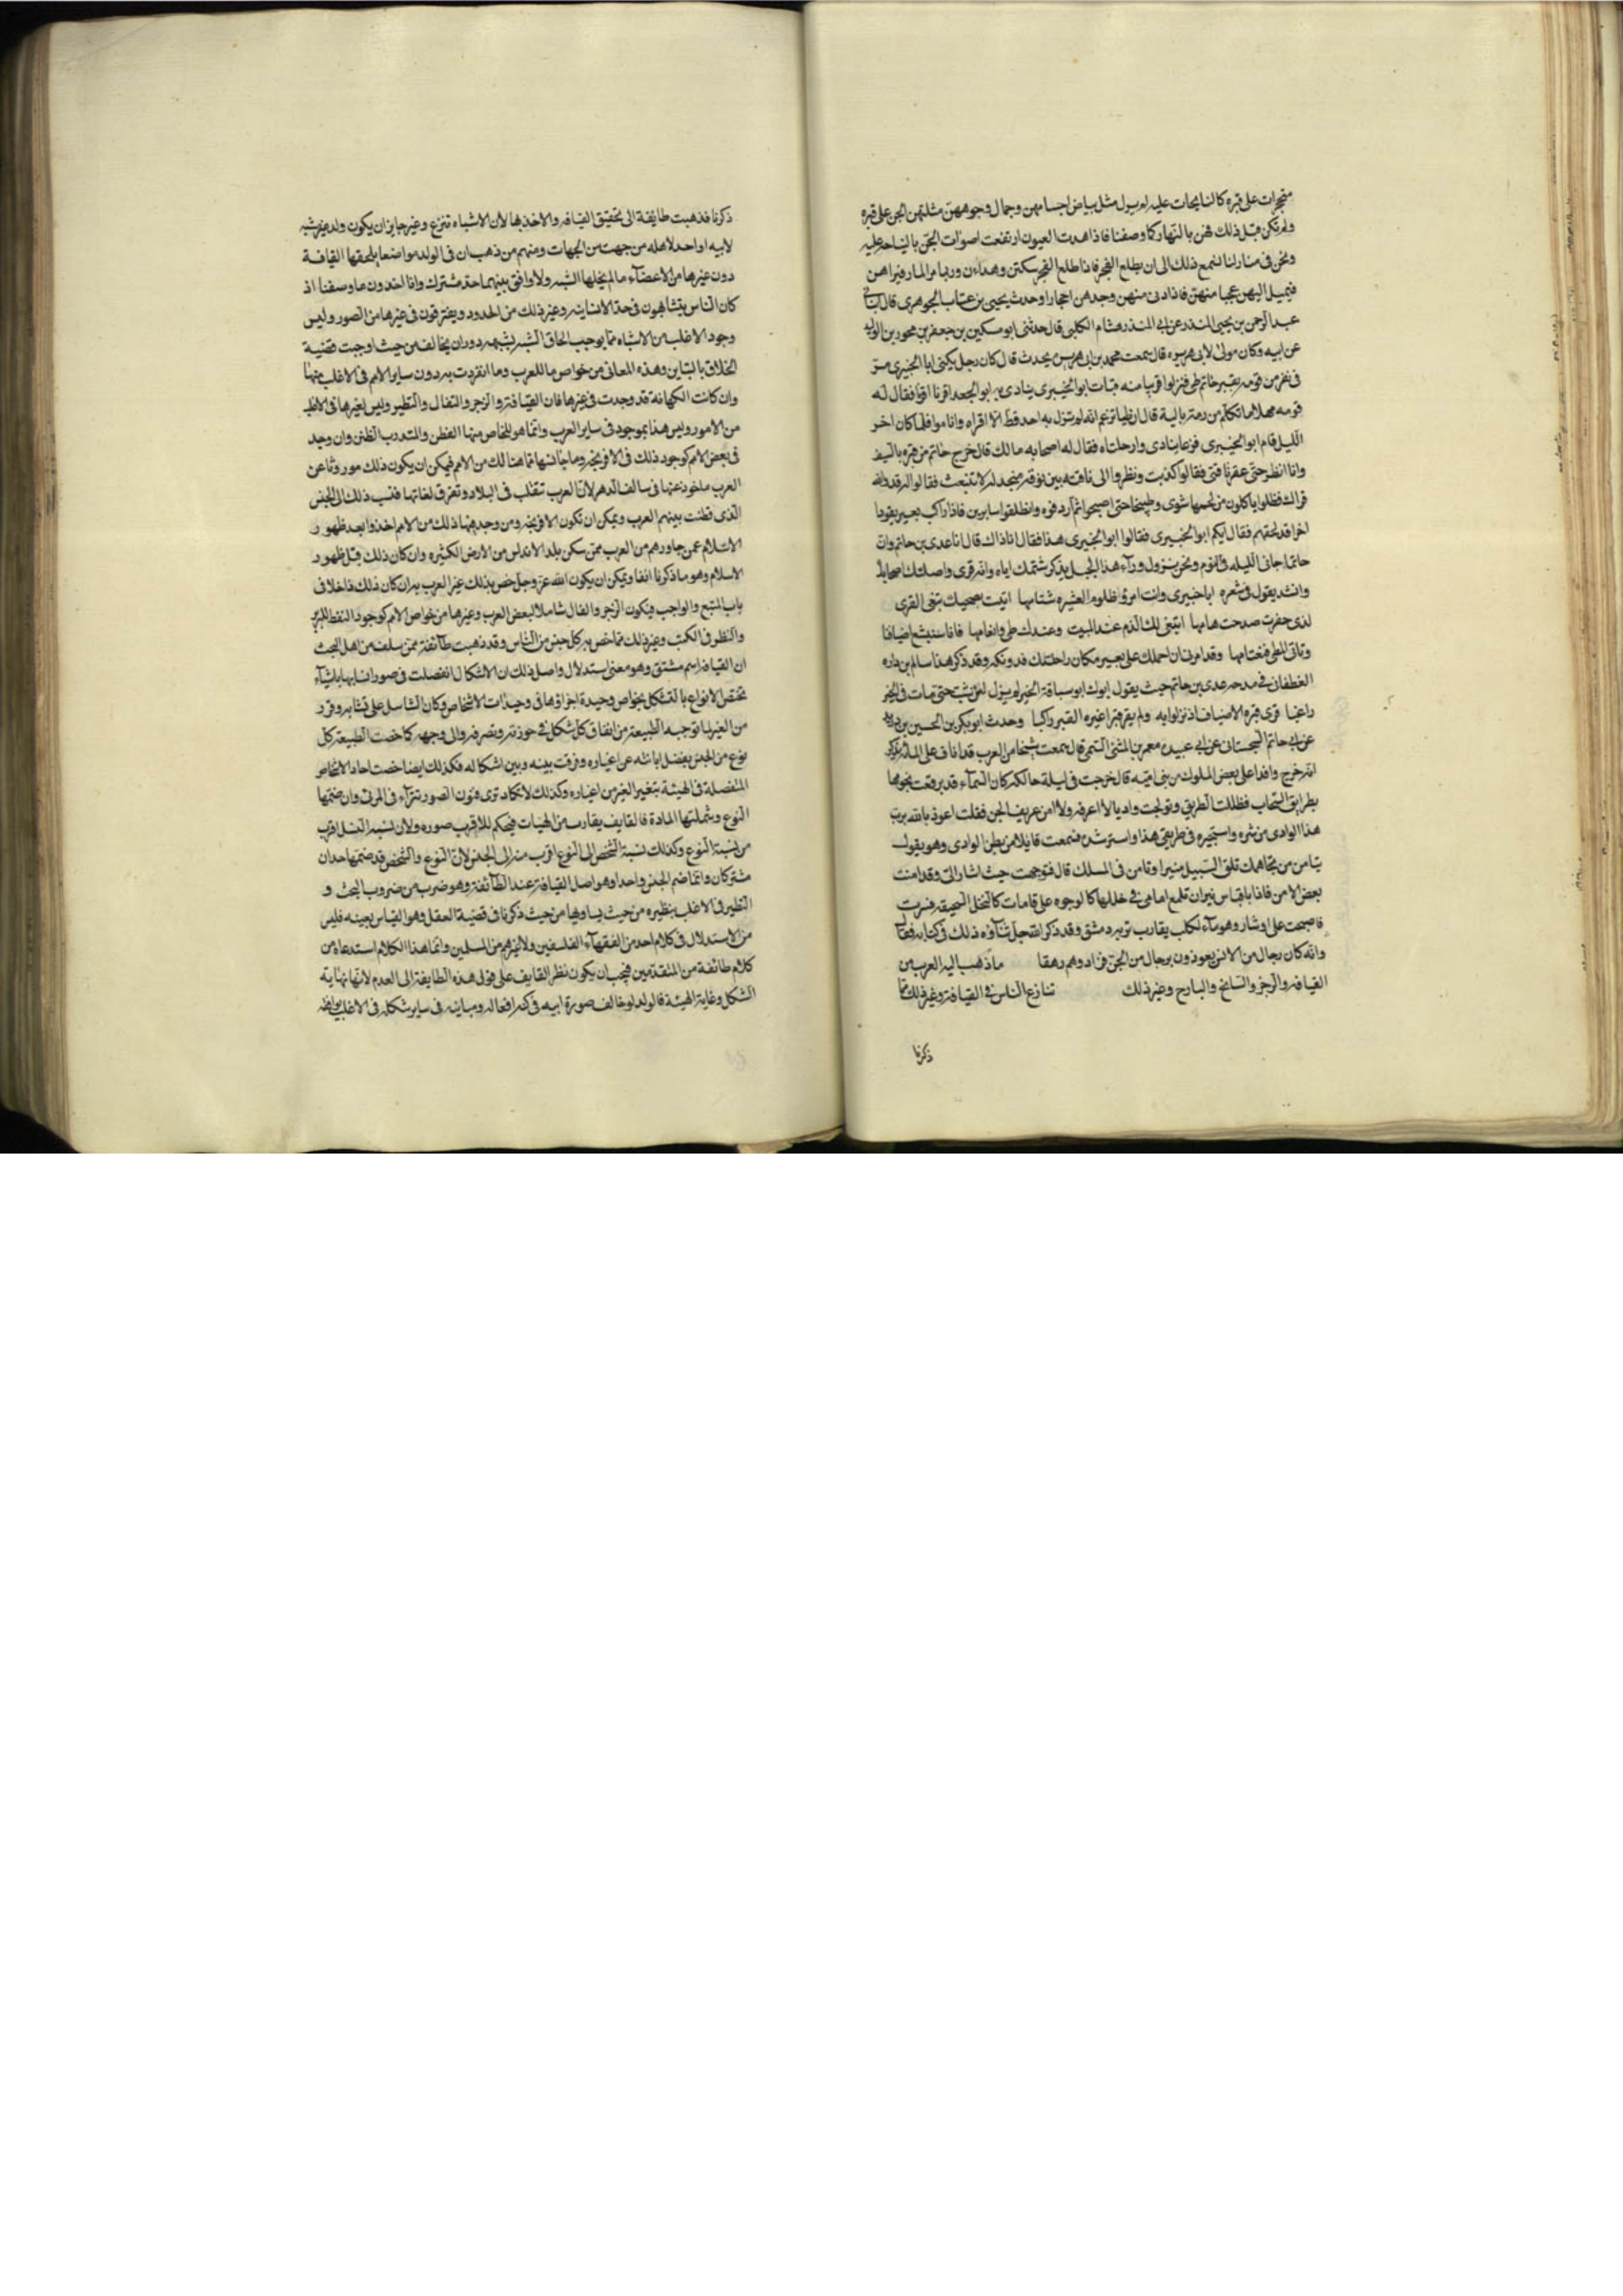 متجرات على قبره كالنايحات عليه لم ير مثل بياض اجسامهن وجمال وجوههن مثلتهن الجن على قبره
ولم تكن قبل ذلك فهن بالنهار كما وصفنا فاذا هدت العيون ارتفعت اصوات الجن بالنياحة عليه
ونحن فى منازلنا نسمع ذلك الى ان يطلع الفجر فاذا طلع الفجر سكتن وهدان وربما مر المار فيراهن
فيميل اليهن عجبا منهن فاذا دنى منهن وجدهن احجارا وحدث يحيى بن عتاب الجوهرى قال
عبد الرحمن بن يحيى المنذر عن ابى المنذر هشام الكلبى قال حدثنى ابو مسكين بن جعفر بن محرر بن الوليد
عن ابيه وكان مولى لابى هريره قال سمعت محمد بن ابى هريره يحدث قال كان رجل يكنى ابا الخيبرى مر
فى نفر من قومه بقبر حاتم طى فنزلوا قريبا منه فبات ابو الخيبرى ينادى يا ابو الجعد اقرنا فقال له
قومه مهلا ما تكلم من رمة بالية قال ان طيا تزعم انه لم ينزل به احد قط الا اقراه وناموا فلما كان اخر
الليل قام ابو الخيبرى فزعا ينادى وا راحلتاه فقال له اصحابه ما لك قال خرج حاتم من قبره بالسيف
وانا انظر حتى عقر ناقتى فقالوا كذبت ونظروا الى ناقته بين نوقهم منجدله لا تنبعث فقالوا له قد والله
قراك فظلوا ياكلون من لحمها شوى وطبيخا حتى اصبحوا ثم اردفوه وانطلقوا سايرين فاذا راكب بعير يقود
اخر قد لحقهم فقال ايكم ابو الخيبرى فقالوا ابو الخيبرى هذا فقال انا ذاك قال انا عدى بن حاتم وان
حاتما جانى الليله فى النوم ونحن نزول ورآء هذا الجبل يذكر شتمك اياه وانه قرى راحلتك اصحابك
وانشد يقول فى شعره ابا خيبرى وانت امرؤ ظلوم العشيره شتامها اتيت بصحبك تبغى القرى
لدى حفرت صدحت هامها اتبغى لك الذم عند المبيت وعندك طى وانعامها فانا سنشبع اضيافنا
وتاتى المطى فنعتامها وقد امرنى ان احملك على بعير مكان راحلتك فدونكه وقد ذكر هذا سالم بن داره
الغطفانى فى مدحه عدى بن حاتم حيث يقول ابوك ابو سباقة الخير لم يزل لدن شب حتى مات فى الخير
راغبا قرى قبره الاضياف اذ نزلوا به ولم يقر قبر اغيره القبر راكبا وحدث ابو بكر بن الحسين بن دريد
عن ابى حاتم السجستانى عن ابى عبيده معمر بن المثنى التيمى قال سمعت شيخا من العرب قد اناف على الماة يذكر
انه خرج وافدا على بعض الملوك من بنى اميه قال خرجت فى ليلة حالكه كان السمآء قد برقعت نجومها
بطرايق السحاب فظللت الطريق وتولجت واديا لا اعرفه ولا امن عزيف الجن فقلت اعوذ بالله برب
هذا الوادى من شره واستجيره فى طريقى هذا واسترشده فسمعت قايلا من بطن الوادى وهو يقول
تيامن من تجاهك تلق السبيل منيرا وتامن فى المسلك قال فتوجهت حيث اشار الى وقد امنت
بعض الامن فاذا باقباس نيران تلمع امامى فى خللها كالوجوه على قامات كالنخل السحيقه فسرت
فاصبحت على اوشار وهو مآء لكلب يقارب تربه دمشق وقد ذكر الله جل ثنآؤه ذلك فى كتابه فقال
وانه كان رجال من الانس يعوذون برجال من الجن فزادوهم رهقا ما ذهب اليه العرب من
القيافه والزجر والسانح والبارح وغير ذلك تنازع الناس فى القيافة وغير ذلك مما
ذكرنا
ذكرنا فذهبت طايفة الى تحقيق القيافه والاخذ بها لان الاشباه تنزع وغير جايز ان يكون ولد غير شبه
لابيه او احد لاهله من جهت من الجهات ومنهم من ذهب ان فى الولد مواضعا يلحقها القيافة
دون غيرها من الاعضآء ما لم يخلها الشبه ولا وافق بينهما حد مشترك وانا لحدود ما وصفنا اذ
كان الناس يتشابهون فى حد الانسانيه وغير ذلك من الحدود ويفترقون فى غيرها من الصور وليس
وجود الاغلب من الاشباه مما يوجب الحاق الشبه بشبهه دون ان يخالف من حيث اوجبت قضية
الخلاق بالتباين وهذه المعانى من خواص ما للعرب وما انفردت به دون ساير الامم فى الاغلب منها
وان كانت الكهانة قد وجدت فى غيرها فان القيافة والزجر والتفال والتطير وليس لغيرها فى الاغلب
من الامور وليس هذا بموجود فى ساير العرب وانما هو للخاص منها الفطن والمتدرب الظنن وان وجد
فى بعض الامم كوجود ذلك فى الافرنجه وما جانسها مما هنالك من الامم فيمكن ان يكون ذلك موروثا عن
العرب ماخوذ عنها فى سالف الدهر لان العرب تنقلب فى البلاد وتعزى لغاتها فنسب ذلك الى الجنس
الذى قطنت بينهم العرب ويمكن ان تكون الافرنجه ومن وجدهما ذلك من الامم اخذوا بعد ظهور
الاسلام عمن جاورهم من العرب ممن سكن بلد الاندلس من الارض الكثيره وان كان ذلك قبل ظهور
الاسلام وهو ما ذكرنا انفا ويمكن ان يكون الله عز وجل خص بذلك غير العرب به ان كان ذلك داخلا فى
باب المتبع والواجب فيكون الزجر والفال شاملا لبعض العرب وغيرها من خواص الامم كوجود النقط للبربر
والنظر فى الكتب وغير ذلك مما خص به كل جنس من الناس وقد ذهبت طآئفة ممن سلف من اهل البحث
ان القيافه اسم مشتق وهو معنى استدلال واصل ذلك ان الاشكال انفصلت فى صور انسابها باشيآء
تختص الانواع بالتشكل بخواص وحيدة اجزاؤها فى وحيدات الاشخاص وكان الناسل على تشابه وفرد
من الغير لما توجبه الطبيعة من اتفاق كل شكل فى حوزته وتصرفه والى وجهه كما خصت الطبيعة كل
نوع من الجنس بفصل ابانته عن اغياره وفرقت بينه وبين اشكاله فكذلك ايضا خصت احاد الاشخاص
المنفصلة فى الهيئة بتغير الغير من اغياره وكذلك لا تكاد ترى فنون الصور تترآء فى المرئ وان ضمتها
النوع وشملتها المادة فالقايف يقارب من الهيات فيحكم للاقرب صوره ولان نسبة النسل اقرب
من نسبة النوع وكذلك نسبة الشخص الى النوع اقرب منه الى الجنس لان النوع والشخص قد ضمتها حدان
مشتركان وانما ضم الجنس واحدا وهو اصل القيافة عند الطآئفة وهو ضرب من ضروب البحث و
النظير فى الاغلب بنظيره من حيث يساويها من حيث ذكرنا فى قضية العقل وهو القياس بعينه فليس
من الاستدلال فى كلام احد من الفقهآء القايسين ولا غيرهم من المسلمين وانما هذا الكلام استدعاه من
كلام طائفة من المتقدمين فيجب ان يكون نظر القايف على قولى هذه الطايفة الى العدم لانها نهاية
الشكل وغاية الهيئة فالولد لو خالف صورة ابيه فى كثر افعاله ومباينه فى ساير شكله فى الاغلب يوافقه